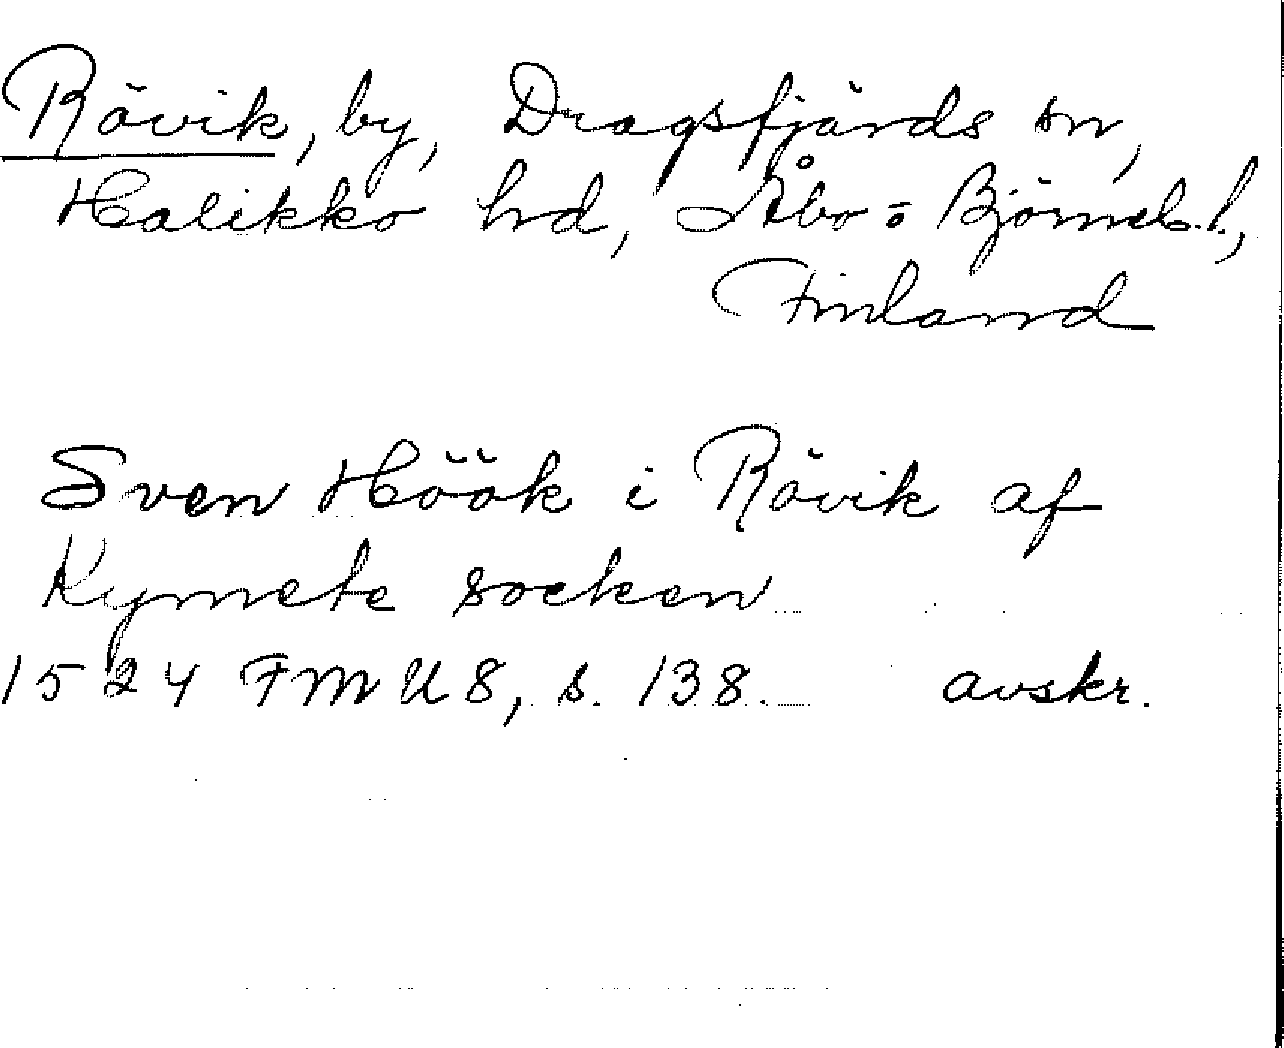 Rövik, by, Dragsfjärds sn,
Halikko hd, Åbo o Björneb. l.,
Finland
Sven Höök i Rövik af
Kymete socken
1524 FMU 8, s. 138. avskr.